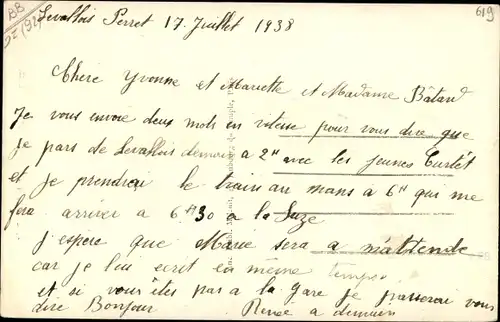 BB
619
Levallois Perret 17 Juillet 1938
Chère Yvonne et Mariette et Madame Bâtard
Je vous envoie deux mots en vitesse pour vous dire que
je pars de Levallois demain a 2h avec les jeunes
et je prendrai le train au mans a 6h qui me
fera arriver a 6h30 a la Suze
j'espere que Marie sera a m'attendre
car je lui ecrit en même temps
et si vous etes pas a la gare je passerai vous
dire Bonjour Renée a demain